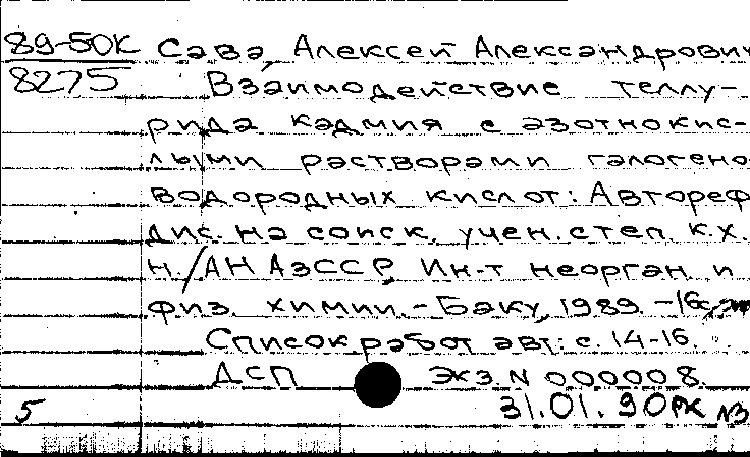 89-50К Сава, Алексей Александрович
8275 Взаимодействие теллу-
рида кадмия с азотнокис-
лыми растворами галогено
водородных кислот: Автореф
дис. на соиск. учен. степ. к.х.
н./АН АзССР, Ин-т неорган. и
физ. химии. - Баку, 1989. - 16с,
Список работ авт.: с. 14-16.
ДСП Экз. N 000008.
5 31.01.90 РК N3